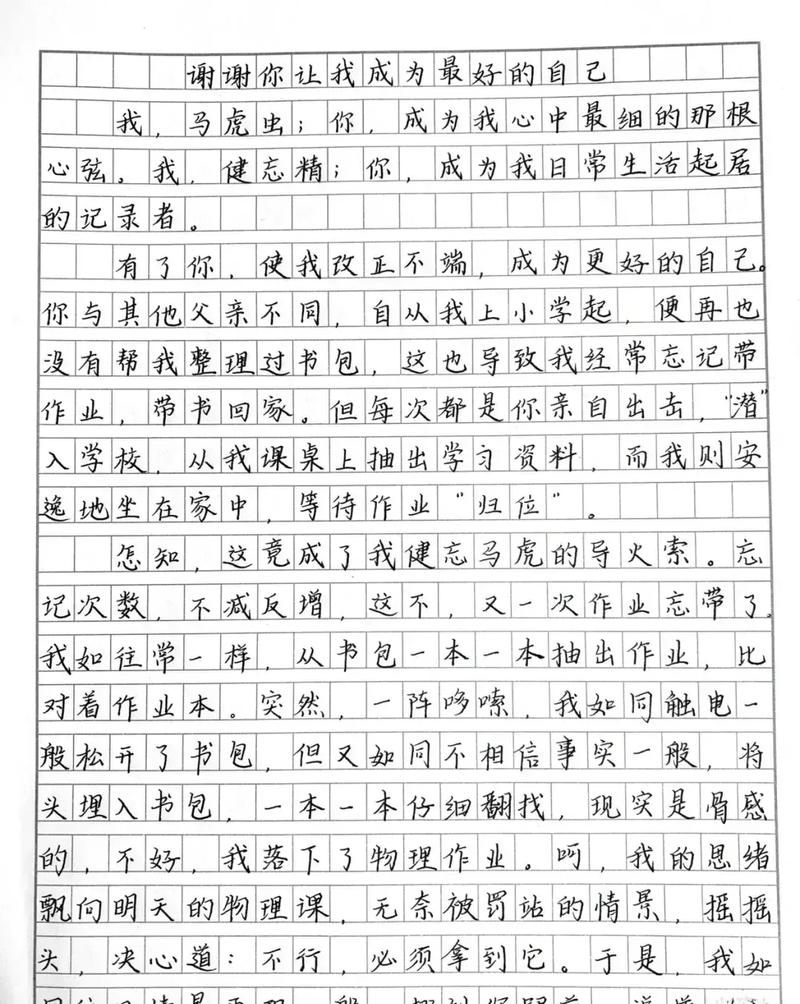 谢谢你让我成为最好的自己
我，马虎虫；你，成为我心中最细的那根
心弦。我，健忘精；你，成为我日常生活起居
的记录者。
有了你，使我改正不端，成为更好的自己。
你与其他父亲不同，自从我上小学起，便再也
没有帮我整理过书包，这也导致我经常忘记带
作业，带书回家。但每次都是你亲自出击，“潜”
入学校，从我课桌上抽出学习资料，而我则安
逸地坐在家中，等待作业“归位”。
怎知，这竟成了我健忘马虎的导火索。忘
记次数，不减反增，这不，又一次作业忘带了。
我如往常一样，从书包一本一本抽出作业，比
对着作业本。突然，一阵哆嗦，我如同触电一
般松开了书包，但又如同不相信事实一般，将
头埋入书包，一本一本仔细翻找，现实是骨感
的，不好，我落下了物理作业。呵，我的思绪
飘向明天的物理课，无奈被罚站的情景，摇摇
头，决心道：不行，必须拿到它。于是，我如